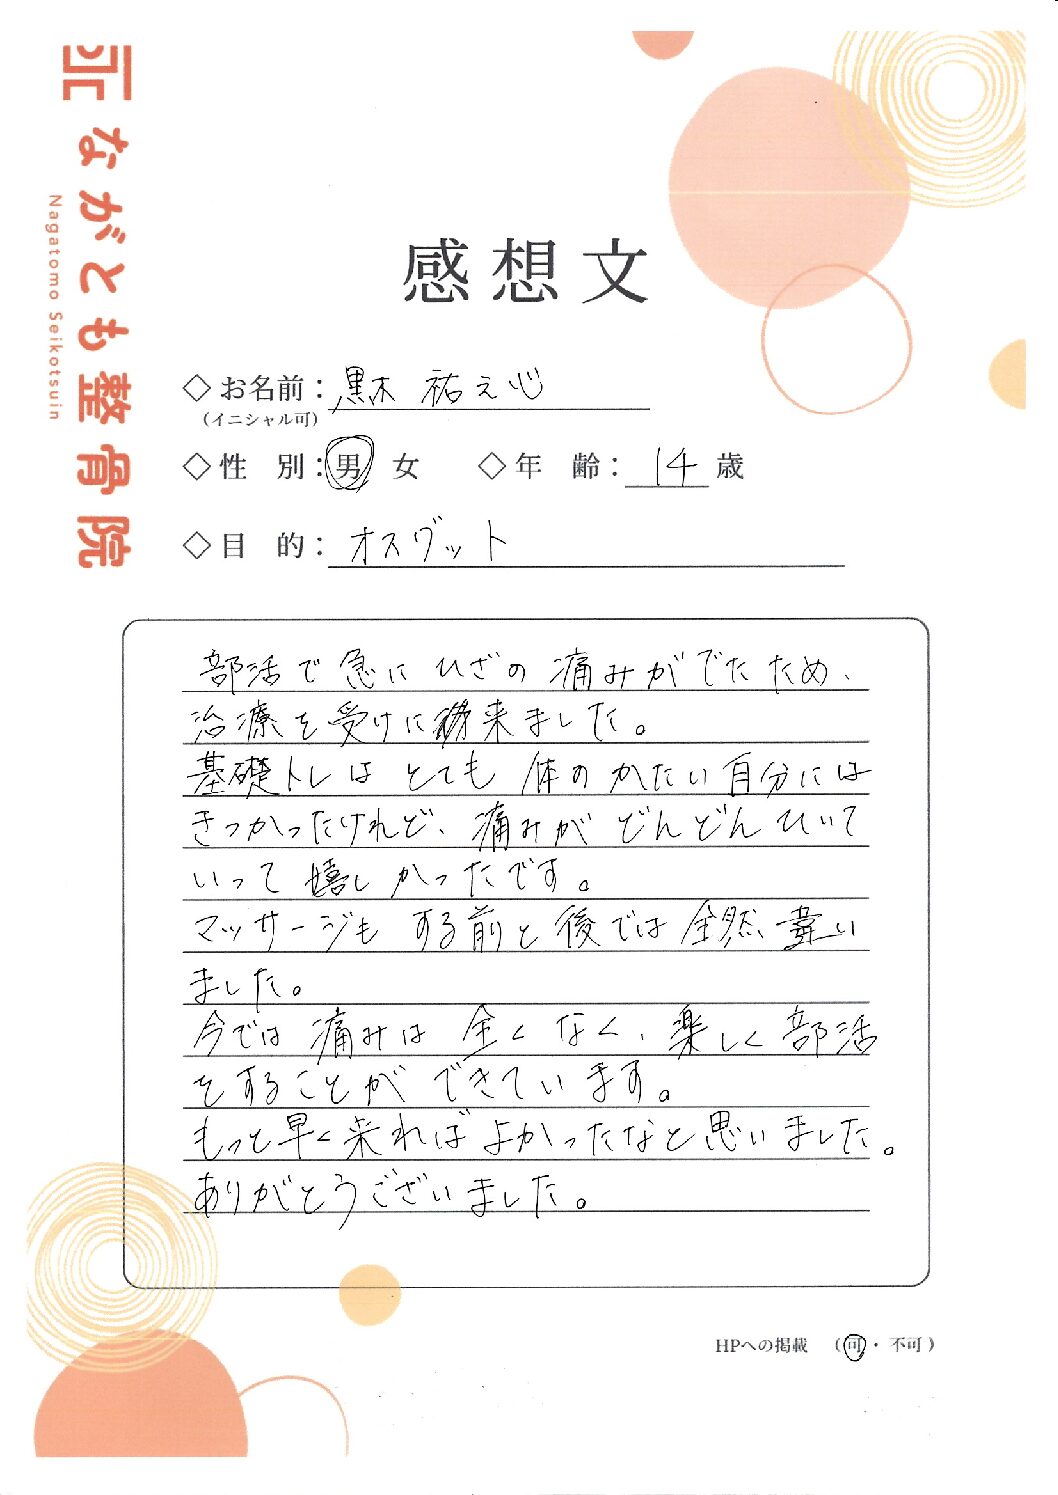 ながとも整骨院
Nagatomo Seikotsuin
感想文
◇お名前：黒木 祐之心
（イニシャル可）
◇性 別：男 女 ◇年 齢：14歳
◇目 的：オスグット
部活で急にひざの痛みがでたため、
治療を受けに来ました。
基礎トレはとても体のかたい自分には
きつかったけれど、痛みがどんどんひいて
いって嬉しかったです。
マッサージもする前と後では全然違い
ました。
今では痛みは全くなく、楽しく部活
をすることができています。
もっと早く来ればよかったなと思いました。
ありがとうございました。
HPへの掲載 （可・不可）